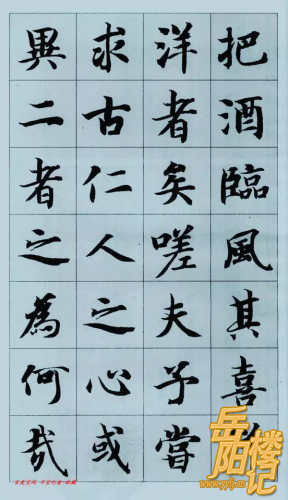 把酒臨風其喜
洋者矣嗟夫予嘗
求古仁人之心或
異二者之為何哉
岳阳楼记